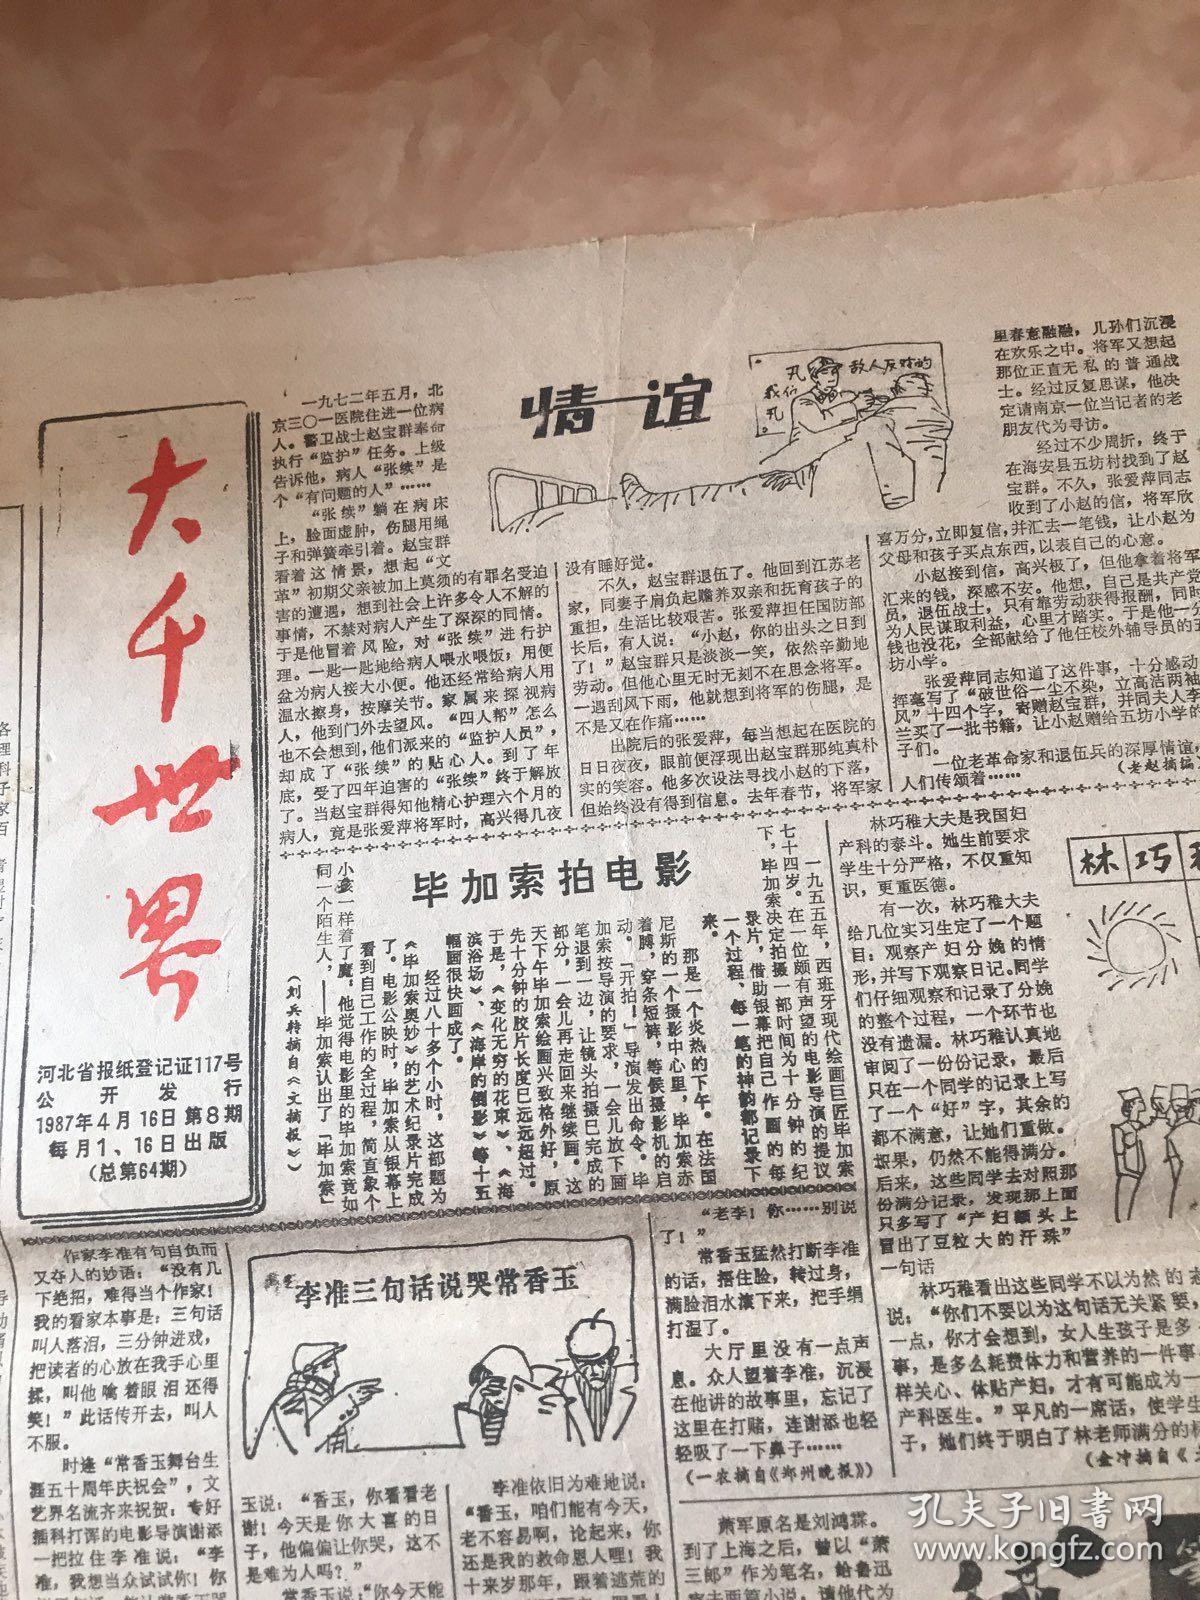 大千世界
河北省报纸登记证117号
公开发行
1987年4月16日第8期
每月1、16日出版
(总第64期)
情谊
一九七二年五月，北
京三〇一医院住进一位病
人。警卫战士赵宝群奉命
执行“监护”任务。上级
告诉他，病人“张续”是
个“有问题的人”……
“张续”躺在病床
上，脸面虚肿，伤腿用绳
子和弹簧牵引着。赵宝群
看着这情景，想起“文
革”初期父亲被加上莫须的有罪名受迫
害的遭遇，想到社会上许多令人不解的
事情，不禁对病人产生了深深的同情。
于是他冒着风险，对“张续”进行护
理。一匙一匙地给病人喂水喂饭，用便
盆为病人接大小便。他还经常给病人用
温水擦身，按摩关节。家属来探视病
人，他到门外去望风。“四人帮”怎么
也不会想到，他们派来的“监护人员”，
却成了“张续”的贴心人。到了年
底，受了四年迫害的“张续”终于解放
了。当赵宝群得知他精心护理六个月的
病人，竟是张爱萍将军时，高兴得几夜
没有睡好觉。
不久，赵宝群退伍了。他回到江苏老
家，同妻子肩负起赡养双亲和抚育孩子的
重担，生活比较艰苦。张爱萍担任国防部
长后，有人说：“小赵，你的出头之日到
了！”赵宝群只是淡淡一笑，依然辛勤地
劳动。但他心里无时无刻不在思念将军。
一遇刮风下雨，他就想到将军的伤腿，是
不是又在作痛……
出院后的张爱萍，每当想起在医院的
日日夜夜，眼前便浮现出赵宝群那纯真朴
实的笑容。他多次设法寻找小赵的下落，
但始终没有得到信息。去年春节，将军家
里春意融融，儿孙们沉浸
在欢乐之中。将军又想起
那位正直无私的普通战
士。经过反复思谋，他决
定请南京一位当记者的老
朋友代为寻访。
经过不少周折，终于
在海安县五坊村找到了赵
宝群。不久，张爱萍同志
收到了小赵的信，将军欣
喜万分，立即复信，并汇去一笔钱，让小赵为
父母和孩子买点东西，以表自己的心意。
小赵接到信，高兴极了，但他拿着将军
汇来的钱，深感不安。他想，自己是共产党
员，退伍战士，只有靠劳动获得报酬，同时
为人民谋取利益，心里才踏实。于是他一分
钱也没花，全部献给了他任校外辅导员的五
坊小学。
张爱萍同志知道了这件事，十分感动，
挥毫写了“破世俗一尘不染，立高洁两袖
风”十四个字，寄赠赵宝群，并同夫人李
兰买了一批书籍，让小赵赠给五坊小学的
子们。
一位老革命家和退伍兵的深厚情谊，
人们传颂着……
(老赵摘编)
敌人反对的
我们
毕加索拍电影
一九五五年，西班牙现代绘画巨匠毕加索
七十四岁。在一位颇有声望的电影导演的提议
下，毕加索决定拍摄一部时间为十分钟的纪
录片，借助银幕把自己作画的每
一个过程、每一笔的神韵都记录下
来。
那是一个炎热的下午。在法国
尼斯的一个摄影中心里，毕加索赤
着膊，穿条短裤，等候摄影机的启
动。“开拍！”导演发出命令。毕
加索按导演的要求，一会儿放下画
笔退到一边，让镜头拍摄已完成的
部分，一会儿再走回来继续画。这
天下午毕加索绘画兴致格外好，原
先十分钟的胶片长度已远远超过。
于是，《变化无穷的花束》、《海
滨浴场》、《海岸的倒影》等十五
幅画很快画成了。
经过八十多个小时，这部题为
《毕加索奥妙》的艺术纪录片完成
了。电影公映时，毕加索从银幕上
看到自己工作的全过程，简直象个
小孩一样着了魔。他觉得电影里的毕加索竟如
同一个陌生人，——毕加索认出了「毕加索」
(刘兵转摘自《文摘报》)
林巧
林巧稚大夫是我国妇
产科的泰斗。她生前要求
学生十分严格，不仅重知
识，更重医德。
有一次，林巧稚大夫
给几位实习生定了一个题
目：观察产妇分娩的情
形，并写下观察日记。同学
们仔细观察和记录了分娩
的整个过程，一个环节也
没有遗漏。林巧稚认真地
审阅了一份份记录，最后
只在一个同学的记录上写
了一个“好”字，其余的
都不满意，让她们重做。
结果，仍然不能得满分。
后来，这些同学去对照那
份满分记录，发现那上面
只多写了“产妇额头上
冒出了豆粒大的汗珠”
一句话
林巧稚看出这些同学不以为然的态
说：“你们不要以为这句话无关紧要，
一点，你才会想到，女人生孩子是多
事，是多么耗费体力和营养的一件事
样关心、体贴产妇，才有可能成为一
产科医生。”平凡的一席话，使学生
子，她们终于明白了林老师满分的标
(金冲摘自《
李准三句话说哭常香玉
作家李准有句自负而
又夺人的妙语：“没有几
下绝招，难得当个作家！
我的看家本事是：三句话
叫人落泪，三分钟进戏，
把读者的心放在我手心里
揉，叫他噙着眼泪还得
笑！”此话传开去，叫人
不服。
时逢“常香玉舞台生
涯五十周年庆祝会”，文
艺界名流齐来祝贺；专好
插科打诨的电影导演谢添
一把拉住李准说：“李
准，我想当众试试你！你
玉说：“香玉，你看看老
谢！今天是你大喜的日
子，他偏偏让你哭，这不
是难为人吗？”
常香玉说：“你今天能
李准依旧为难地说：
“香玉，咱们能有今天，
老不容易啊，论起来，你
还是我的救命恩人哩！我
十来岁那年，跟着逃荒的
“老李！你……别说
了！”
常香玉猛然打断李准
的话，捂住脸，转过身，
满脸泪水滚下来，把手绢
打湿了。
大厅里没有一点声
息。众人望着李准，沉浸
在他讲的故事里，忘记了
这里在打赌，连谢添也轻
轻吸了一下鼻子……
(一农摘自《郑州晚报》)
萧军原名是刘鸿霖。
到了上海之后，曾以“萧
三郎”作为笔名，给鲁迅
孔夫子旧書网
www.kongfz.com